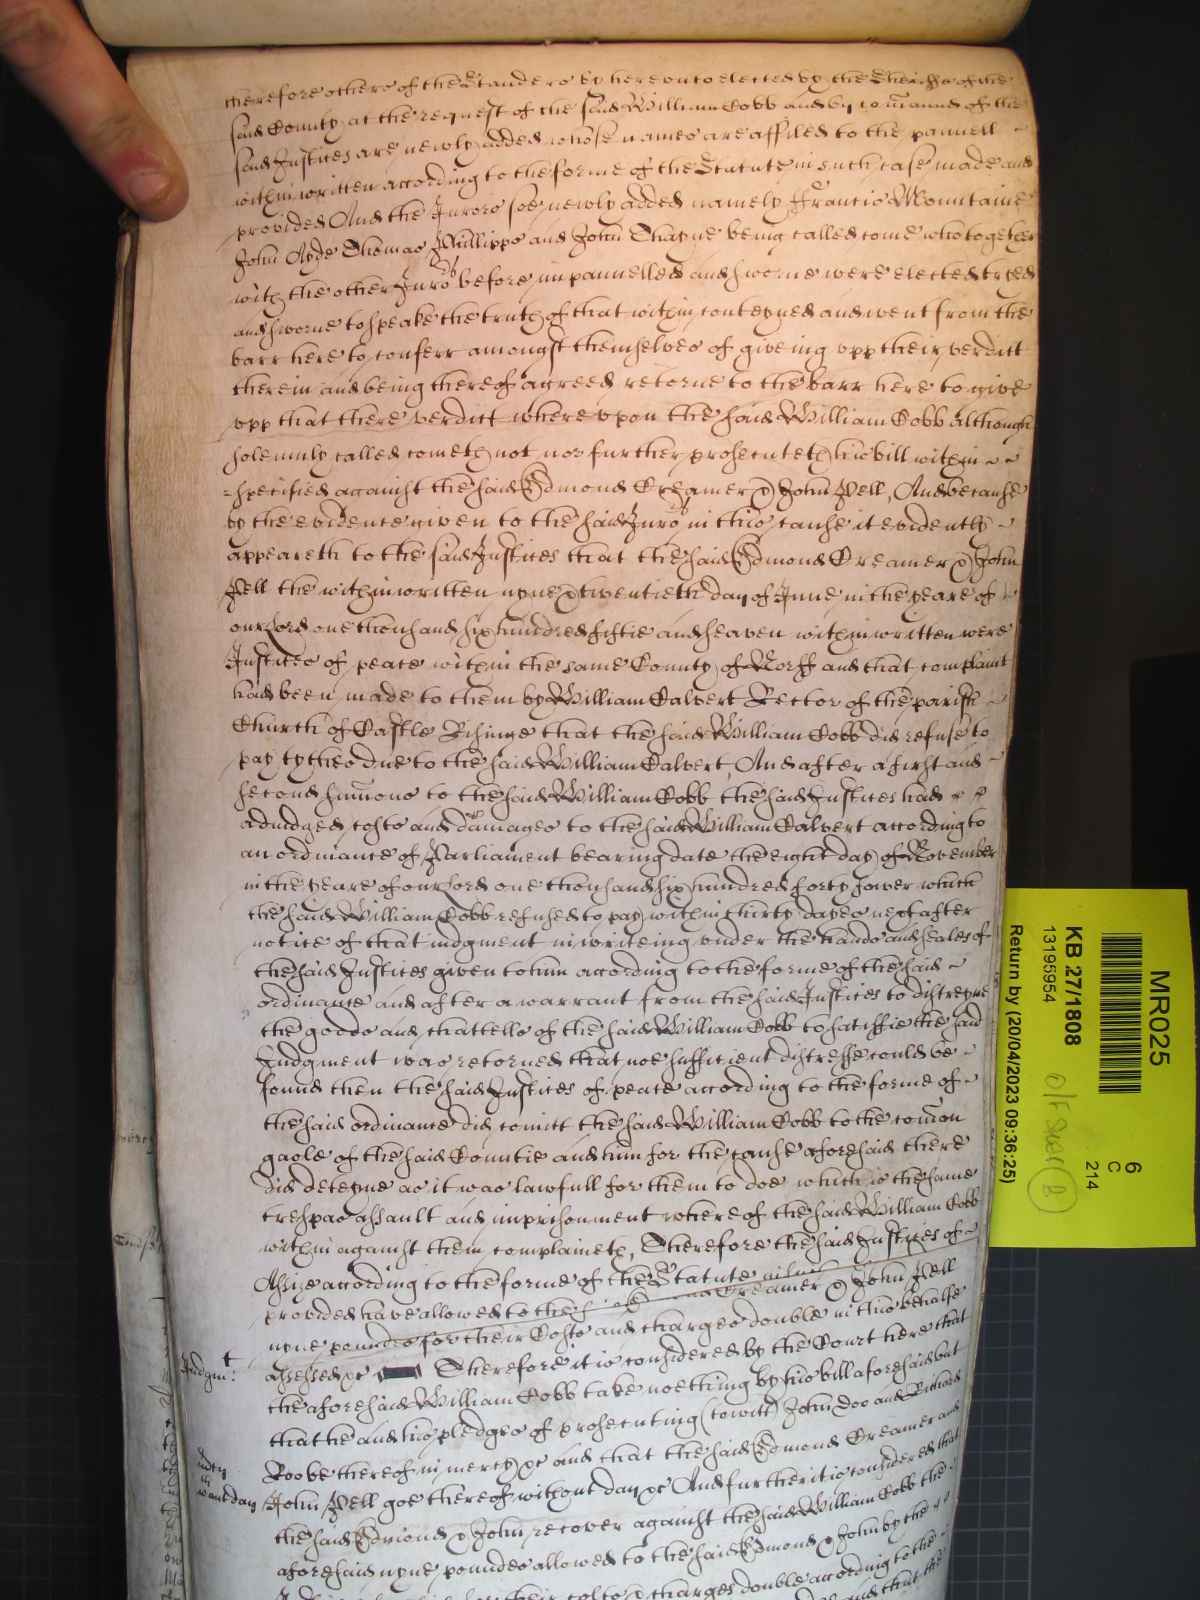 therefore others of the Standers by hereunto elected by the Sheriffe of the
said County at the request of the said William Cobb and by comand of the
said Justices are newly added whose names are affiled to the pannell
within written according to the forme of the Statute in such case made and
provided And the Jurors soe newly added namely Francis Mountaine
John Thomas Phillipps and John being called come who together
with the other Juro:rs before impannelled and sworne were elected tryed
and sworne to speake the truth of that within conteyned and went from the
barr here to conferr amongst themselves of giveing upp their verdict
therein and being thereof agreed retorne to the barr here to give
upp that there verdict whereupon the said William Cobb although
solemnly called cometh not nor further prosecuteth his bill within
specified against the said Edmond Creamer & John Pell, And because
by the evidence given to the said Juro:rs in this cause it evidently
appeareth to the said Justices that the said Edmond Creamer & John
Pell the within written nyne & twentieth day of June in the yeare of
our Lord one thousand six hundred fiftie and seaven within written were
Justices of peace within the same County of Norff and that complaint
had been made to them by William Calvert Rector of the parish
Church of Castle Risinge that the said William Cobb did refuse to
pay tythes due to the said William Calvert, And after a first and
second sumons to the said William Cobb the said Justices had
adjudged costs and damages to the said William Calvert according to
an ordinance of Parliament bearing date the eight day of November
in the yeare of our Lord one thousand six hundred forty fower which
the said William Cobb refused to pay within thirty dayes next after
notice of that judgment in writeing under the hands and seales of
the said Justices given to him according to the forme of the said
ordinance and after a warrant from the said Justices to distreyne
the goods and chattells of the said William Cobb to satisfie the said
Judgment was retorned that noe sufficient distresse could be
found then the said Justices of peace according to the forme of
the said ordinance did comitt the said William Cobb to the comon
gaole of the said Countie and him for the cause aforesaid there
did deteyne as it was lawfull for them to doe which is the same
trespas assault and imprisonment whereof the said William Cobb
within against them complaineth, Therefore the said Justices of
Assize according to the forme of the Statute
provided have allowed to the Creamer & John Pell
nyne pounds for their Costs and charges double in this behalfe
assessed &c Therefore it is considered by the Court here that
Judgm:t
the aforesaid William Cobb take nothing by his bill aforesaid but
that he and his pledges of prosecuting (to witt) John Doo and Richard
Roo be thereof in mercy &c and that the said Edmond Creamer and
mercy
without day
John Pell goe thereof without day &c And further it is considered that
the said Edmond & John recover against the said William Cobb the
aforesaid nyne pounds allowed to the said Edmond & John by the
their costs & charges double according to the
MR025
6
C
214
KB 27/1808
13195954
Return by (20/04/2023 09:36:25)
B